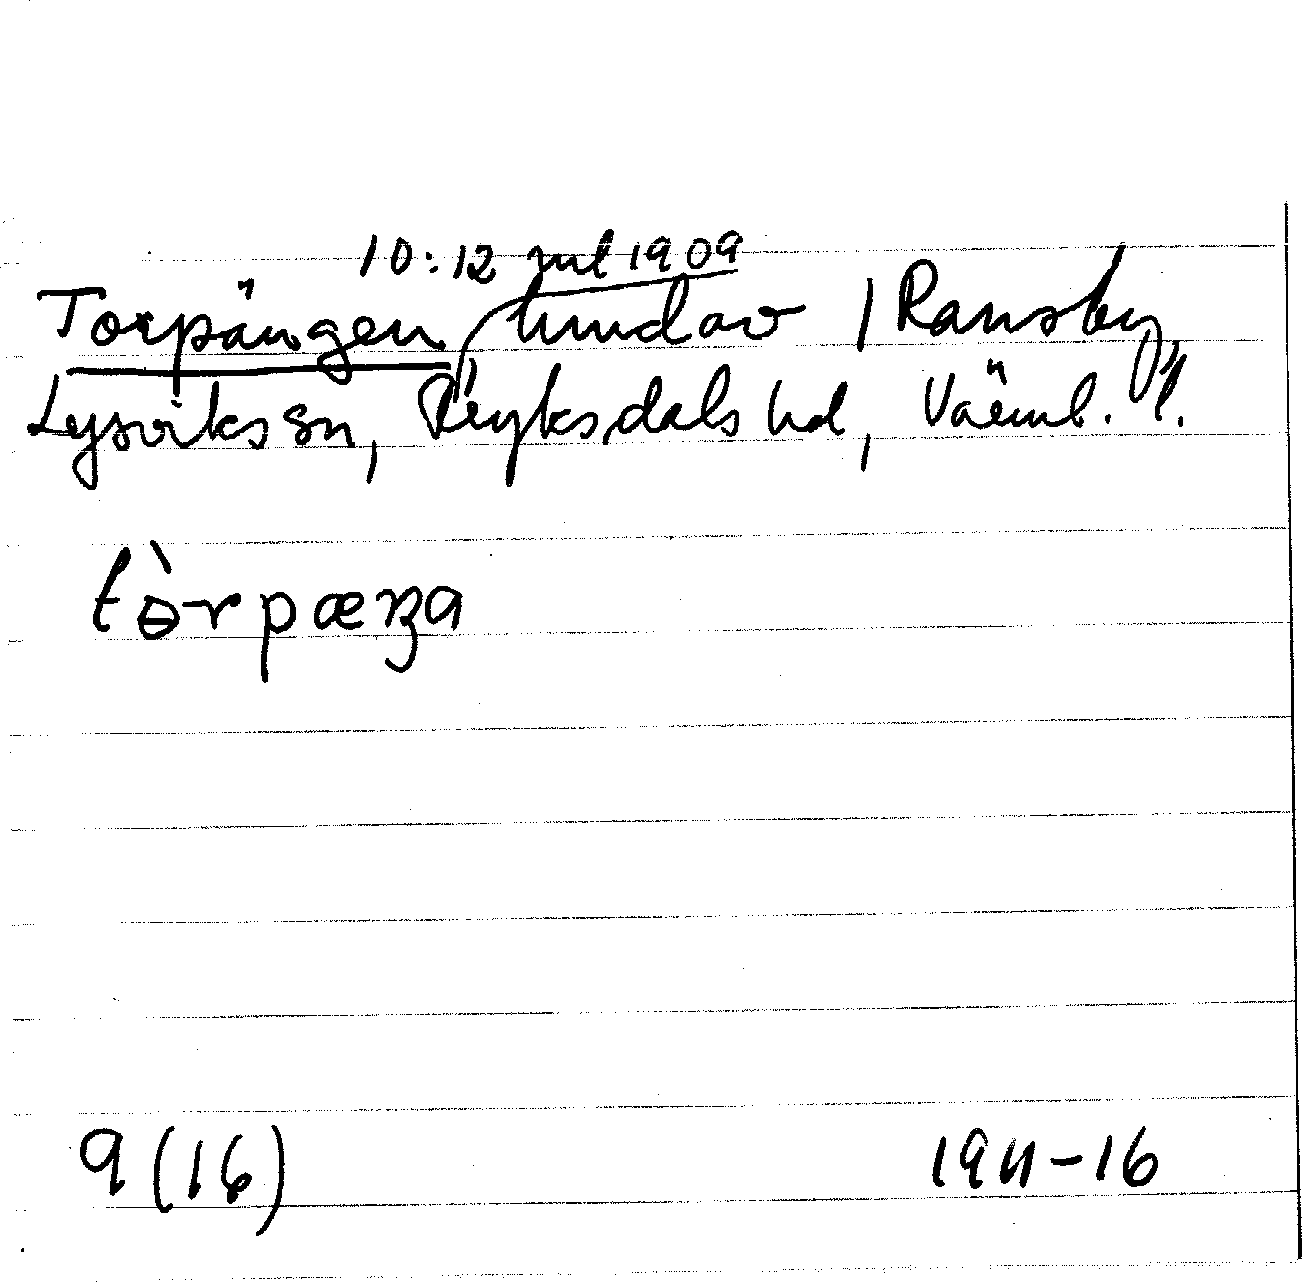 10:12 jul 1909
Torpängen, hmdav / Ransby,
Lysviks sn, Fryksdals hd, Värml. l.
tɵ̀rpæŋa
9 (16)
1911-16